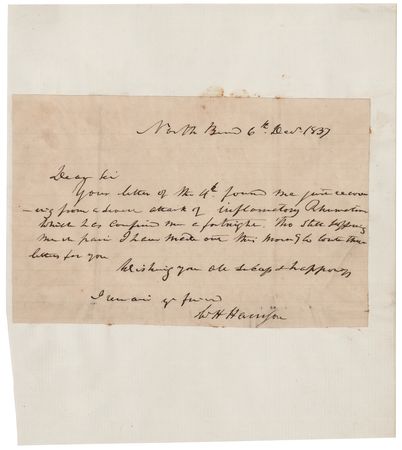 North Bend 6th Decr 1837
Dear Sir
Your letter of the 4th found me just recover
-ing from a severe attack of inflamatory Rhumatism
which has confined me a fortnight. Tho still suffering
much pain I have made out this morng to write three
letters for you
Wishing you all success & happiness
I remain yr friend
W H Harrison